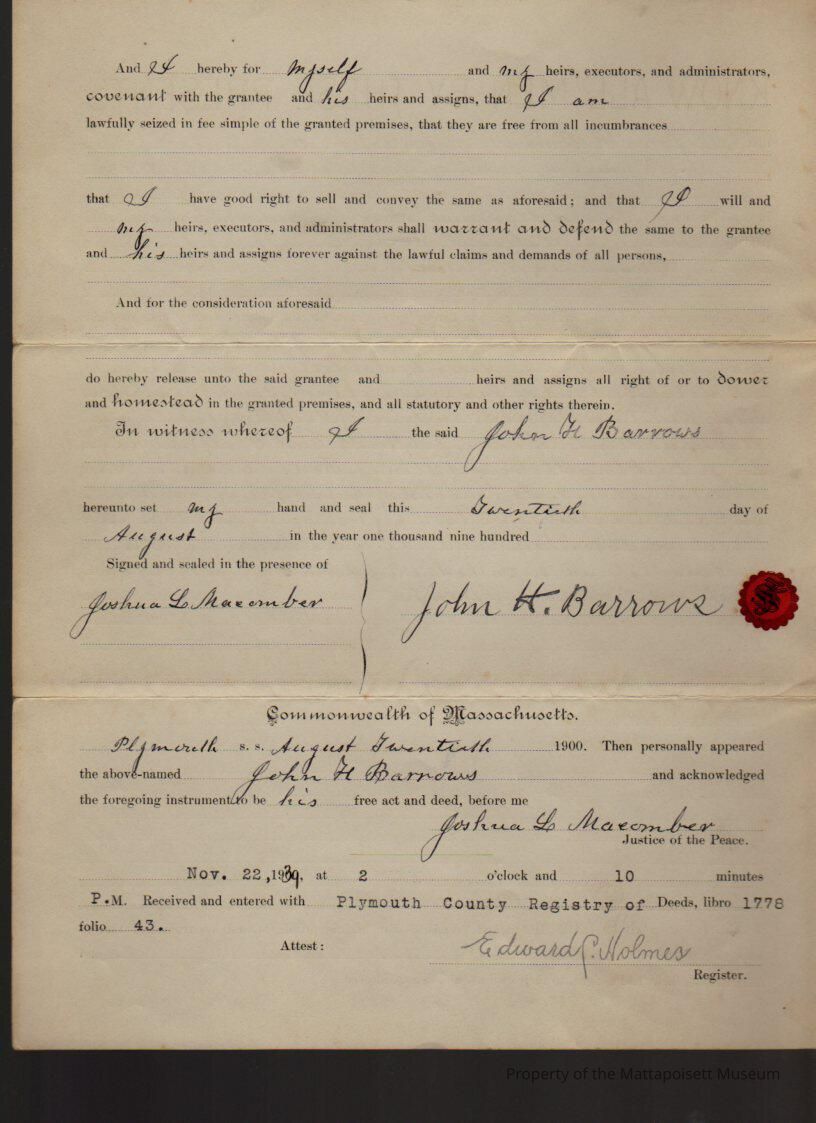 And I hereby for myself and my heirs, executors, and administrators,
covenant with the grantee and his heirs and assigns, that I am
lawfully seized in fee simple of the granted premises, that they are free from all incumbrances
that I have good right to sell and convey the same as aforesaid; and that I will and
my heirs, executors, and administrators shall warrant and defend the same to the grantee
and his heirs and assigns forever against the lawful claims and demands of all persons,
And for the consideration aforesaid
do hereby release unto the said grantee and heirs and assigns all right of or to dower
and homestead in the granted premises, and all statutory and other rights therein.
In witness whereof I the said John H Barrows
hereunto set my hand and seal this Twentieth day of
August in the year one thousand nine hundred
Signed and sealed in the presence of
Joshua L Macomber John H. Barrows
Commonwealth of Massachusetts.
Plymouth s. s. August Twentieth 1900. Then personally appeared
the above-named John H Barrows and acknowledged
the foregoing instrument to be his free act and deed, before me
Joshua L Macomber
Justice of the Peace.
Nov. 22, 1939, at 2 o'clock and 10 minutes
P.M. Received and entered with Plymouth County Registry of Deeds, libro 1778
folio 43.
Attest: Edward P. Holmes
Register.
Property of the Mattapoisett Museum